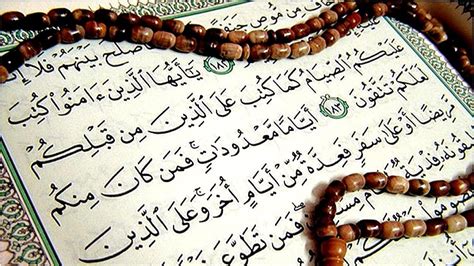 فَ مِن مُّوصٍ
صْلَحَ بَيْنَهُمْ فَلَآ إِ
۝١٨٢ يَٰٓأَيُّهَا ٱلَّذِينَ ءَامَنُوا۟ كُتِبَ
عَلَيْكُمُ ٱلصِّيَامُ كَمَا كُتِبَ عَلَى ٱلَّذِينَ مِن قَبْلِكُمْ
لَعَلَّكُمْ تَتَّقُونَ ۝١٨٣ أَيَّامًا مَّعْدُودَٰتٍ ۚ فَمَن كَانَ مِنكُم
مَّرِيضًا أَوْ عَلَىٰ سَفَرٍ فَعِدَّةٌ مِّنْ أَيَّامٍ أُخَرَ ۚ وَعَلَى ٱلَّذِينَ
قُونَهُۥ فِدْيَةٌ مِسْ فَمَن تَطَوَّعَ
صُومُوا۟